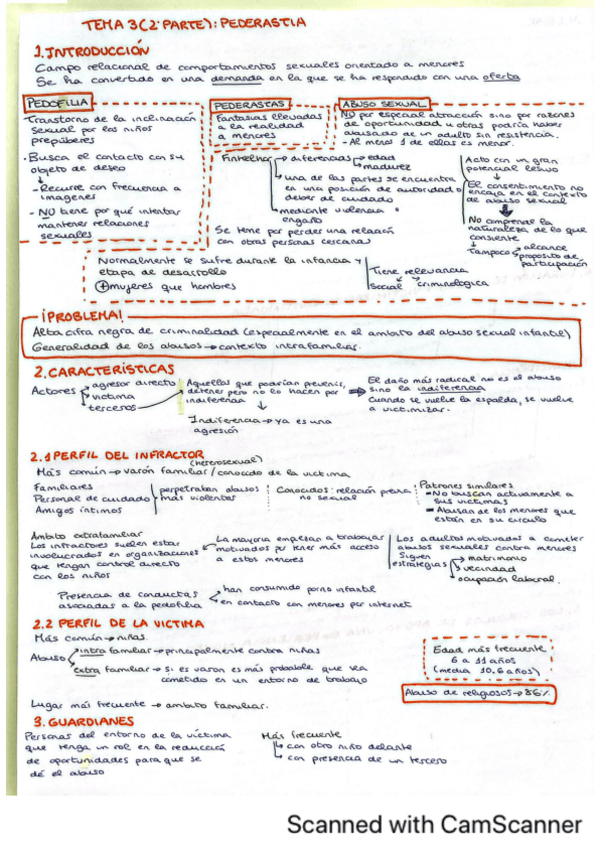 TEMA 3 (2ª PARTE): PEDERASTIA
1. INTRODUCCIÓN
Campo relacional de comportamientos sexuales orientado a menores
Se ha convertido en una demanda en la que se ha respondido con una oferta
PEDOFILIA
Transtorno de la inclinación
sexual por los niños
prepúberes
· Busca el contacto con su
objeto de deseo
- Recurre con frecuencia a
imagenes
- NO tiene por qué intentar
mantener relaciones
sexuales
PEDERASTAS
Fantasias llevadas
a la realidad
a menores
Finkelhor → diferencias → edad
madurez
una de las partes se encuentra
en una posición de autoridad o
deber de cuidado
mediante violencia
engaño
Se teme por perder una relación
con otras personas cercanas
ABUSO SEXUAL
NO por especial atracción sino por razones
de oportunidad u otras podría haber
abusado de un adulto sin resistencia.
- Al menos 1 de ellas es menor.
Acto con un gran
potencial lesivo
El consentimiento no
encaja en el contexto
de abuso sexual
No comprende la
naturaleza de lo que
consiente
Tampoco → alcance
propósito de
participación
Normalmente se sufre durante la infancia y
etapa de desarrollo
+ mujeres que hombres
Tiene relevancia
social criminológica
¡PROBLEMA!
Alta cifra negra de criminalidad (especialmente en el ambito del abuso sexual infantil)
Generalidad de los abusos → contexto intrafamiliar.
2. CARACTERÍSTICAS
Actores → agresor directo
víctima
terceros
Aquellos que podrían prevenir,
detener pero no lo hacen por
indiferencia
Indiferencia → ya es una
agresión
El daño más radical no es el abuso
sino la indiferencia.
Cuando se vuelve la espalda, se vuelve
a victimizar.
2.1 PERFIL DEL INFRACTOR
(heterosexual)
Más común → varón familiar / conocido de la victima
Familiares
Personal de cuidado
Amigos íntimos
perpetraban abusos
más violentos
Conocidos: relación previa
no sexual
Patrones similares
- No buscan activamente a
sus victimas
- Abusan de los menores que
están en su circulo
Ambito extrafamiliar
Los infractores suelen estar
involucrados en organizaciones
que tengan control directo
con los niños
La mayoria empiezan a trabajar
motivados por tener más acceso
a estos menores
Los adultos motivados a cometer
abusos sexuales contra menores
Siguen
estrategias → matrimonio
vecindad
ocupación laboral.
Presencia de conductas
asociadas a la pedofilia
han consumido porno infantil
en contacto con menores por internet
2.2 PERFIL DE LA VICTIMA
Más común → niñas.
Abuso → intra familiar → principalmente contra niñas
extra familiar → si es varon es más probable que sea
cometido en un entorno de trabajo
Lugar más frecuente → ambito familiar.
Edad más frecuente
6 a 11 años
(media 10.6 años)
Abuso de religiosos → 86%
3. GUARDIANES
Personas del entorno de la víctima
que tenga un rol en la reducción
de oportunidades para que se
dé el abuso
Más frecuente
con otro niño delante
con presencia de un tercero
Scanned with CamScanner